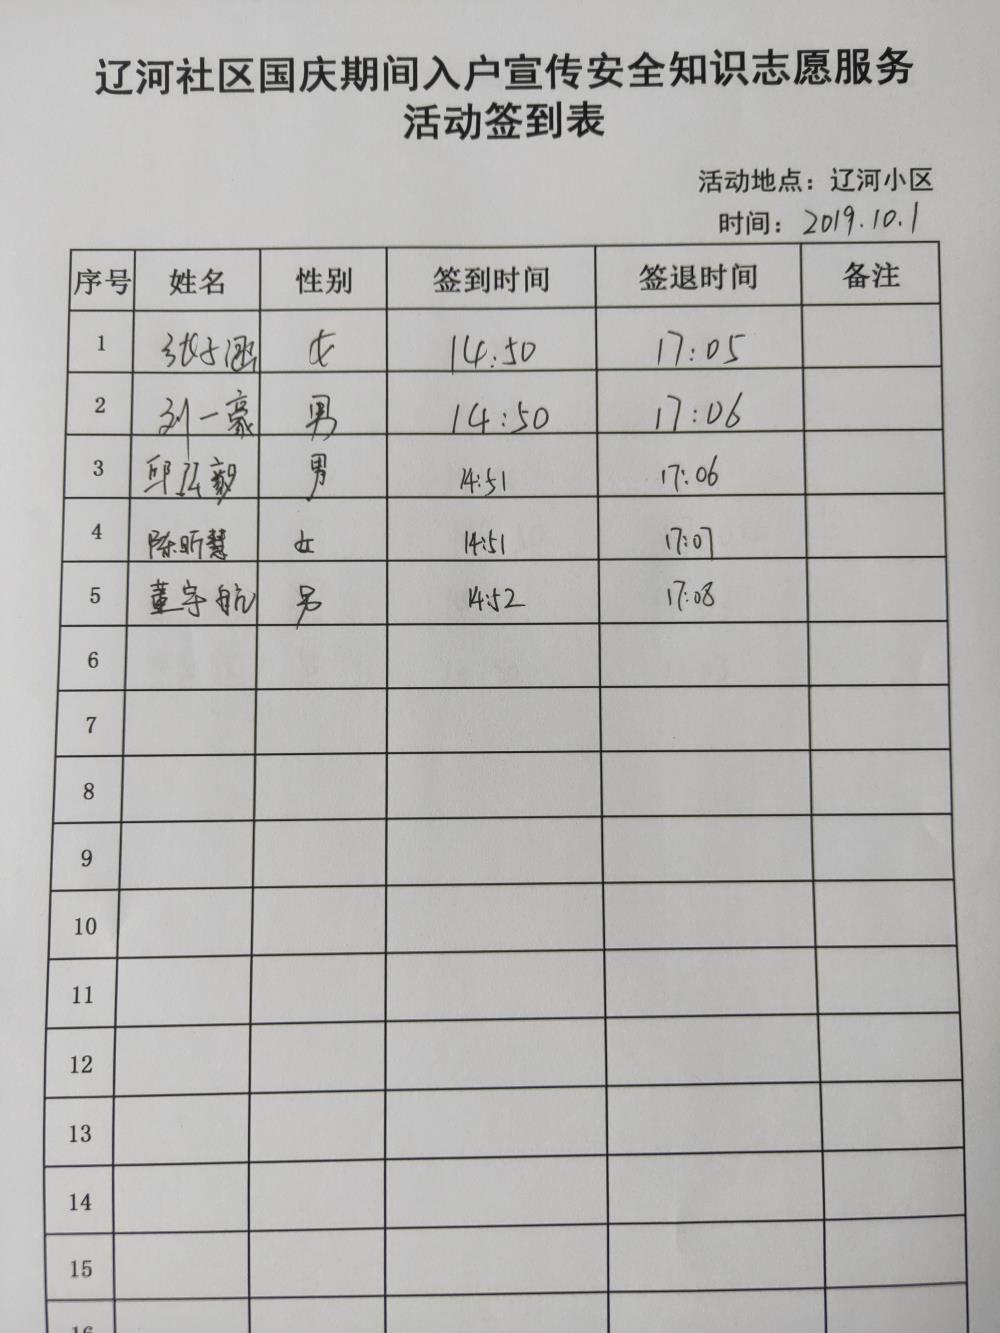 辽河社区国庆期间入户宣传安全知识志愿服务
活动签到表
活动地点：辽河小区
时间：2019.10.1
序号 姓名 性别 签到时间 签退时间 备注
1 张子涵 女 14:50 17:05
2 刘一豪 男 14:50 17:06
3 邱弘毅 男 14:51 17:06
4 陈昕慧 女 14:51 17:07
5 董宇航 男 14:52 17:08
6
7
8
9
10
11
12
13
14
15
16